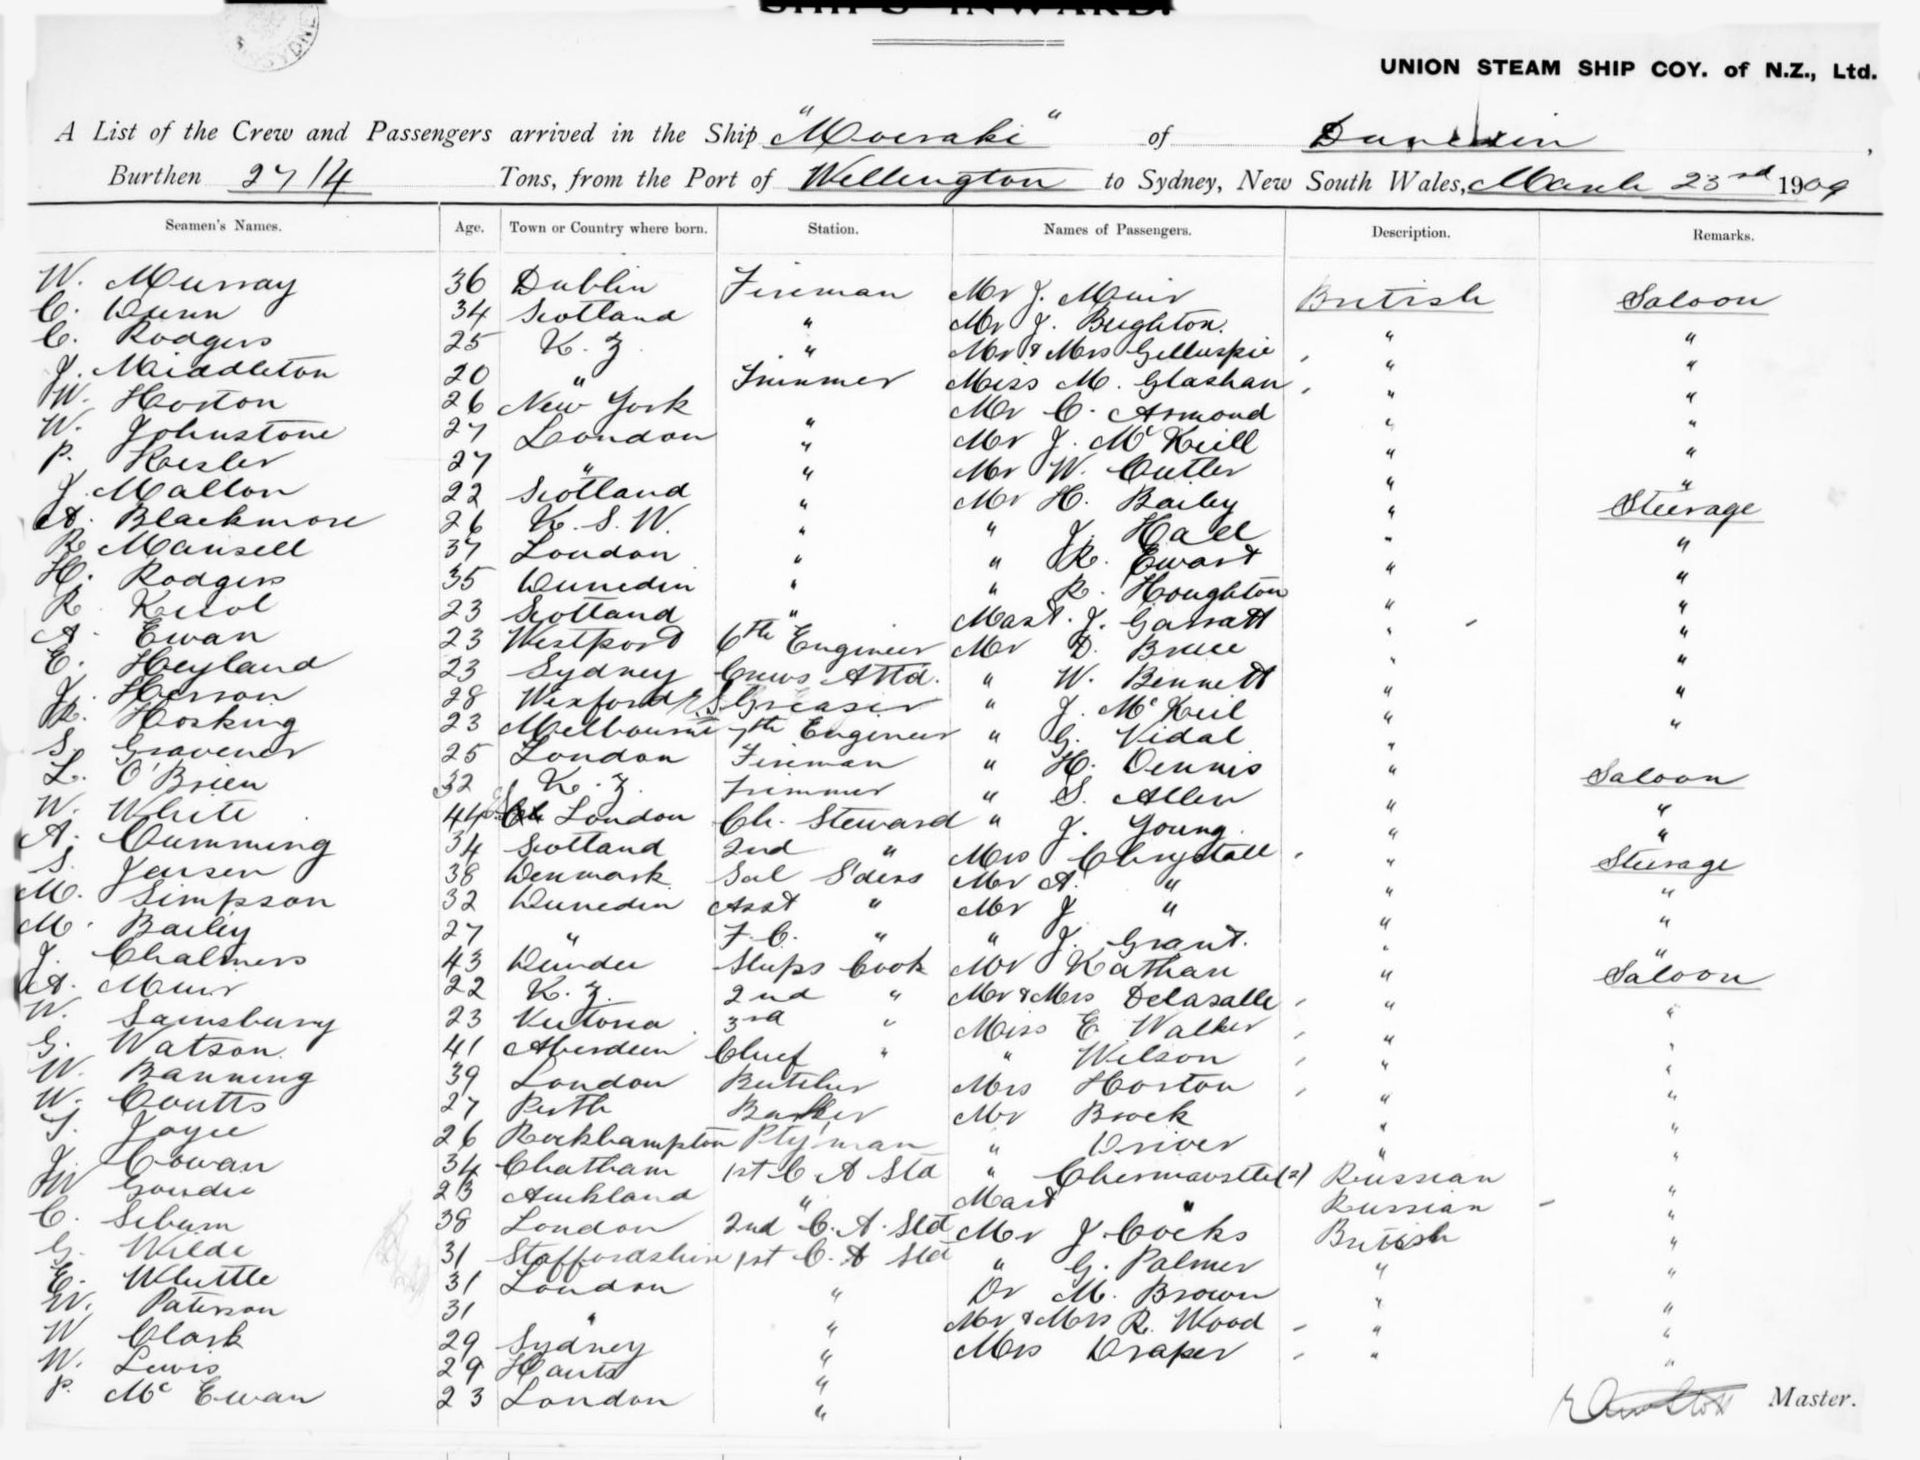 SHIPS INWARD.
UNION STEAM SHIP COY. of N.Z., Ltd.
A List of the Crew and Passengers arrived in the Ship "Moeraki" of Dunedin,
Burthen 2714 Tons, from the Port of Wellington to Sydney, New South Wales, March 23rd 1909
Seamen's Names. Age. Town or Country where born. Station. Names of Passengers. Description. Remarks.
W. Murray 36 Dublin Fireman Mr J. Muir British Saloon
C. Dunn 34 Scotland " Mr J. Beighton. " "
C. Rodgers 25 N. Z. " Mr & Mrs Gilluspie " "
J. Middleton 20 " Trimmer Miss M. Glashan " "
W. Horton 26 New York " Mr C. Armond " "
W. Johnstone 27 London " Mr J. McNeill " "
P. Kesler 27 " " Mr W. Cutler " "
J. Mallon 22 Scotland " Mr H. Bailey " Steerage
A. Blackmore 26 N. S. W. " " J. Hall " "
R. Mansell 37 London " " R. Ewart " "
H. Rodgers 35 Dunedin " " R. Houghton " "
R. 23 Scotland " Mast. J. Garratt " "
A. Ewan 23 Westport 6th Engineer Mr D. Bruce " "
E. Heyland 23 Sydney Crews Attd. " W. Bennett " "
J. Herron 28 Wexford Greaser " J. McNeil " "
R. Hosking 23 Melbourne 7th Engineer " G. Vidal "
S. Gravener 25 London Fireman " H. Dennis " Saloon
L. O'Brien 32 N. Z. Trimmer " S. Allen " "
W. White 44 London Ch. Steward " J. Young. " "
A. Cumming 34 Scotland 2nd " Mrs Chrystall " Steerage
S. Jensen 38 Denmark Sal S'ders Mr A. " " "
M. Simpson 32 Dunedin Asst " Mr J " " "
M. Bailey 27 " F. C. " " J. Grant. " "
J. Chalmers 43 Dundee Ships Cook Mr Nathan " Saloon
A. Muir 22 N. Z. 2nd " Mr & Mrs Delasalle " "
W. Sainsbury 23 Victoria 3rd " Miss E. Walker " "
G. Watson 41 Aberdeen Chief " " Wilson " "
W. Banning 39 London Butcher Mrs Horton " "
W. Coutts 27 Perth Barker Mr Brock " "
T. Joyce 26 Rockhampton P'ty'man " Driver " "
J. Cowan 34 Chatham 1st C A Std " (2) Russian "
W Goudie 23 Auckland " Mast " Russian "
C. Seburn 38 London 2nd C. A. Std Mr J Cocks British "
G. Wilde 31 Staffordshire 1st C. A Std " G. Palmer " "
E. Whittle 31 London " Dr M. Brown " "
W. Paterson 31 " " Mr & Mrs R. Wood " "
W Clark 29 Sydney " Mrs Draper " "
W. Lewis 29 Hants "
P. McEwan 23 London "
Master.